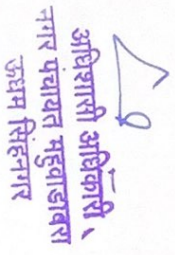 अधिशासी अधिकारी,
नगर पंचायत महुवाडाबरा
ऊधम सिंहनगर